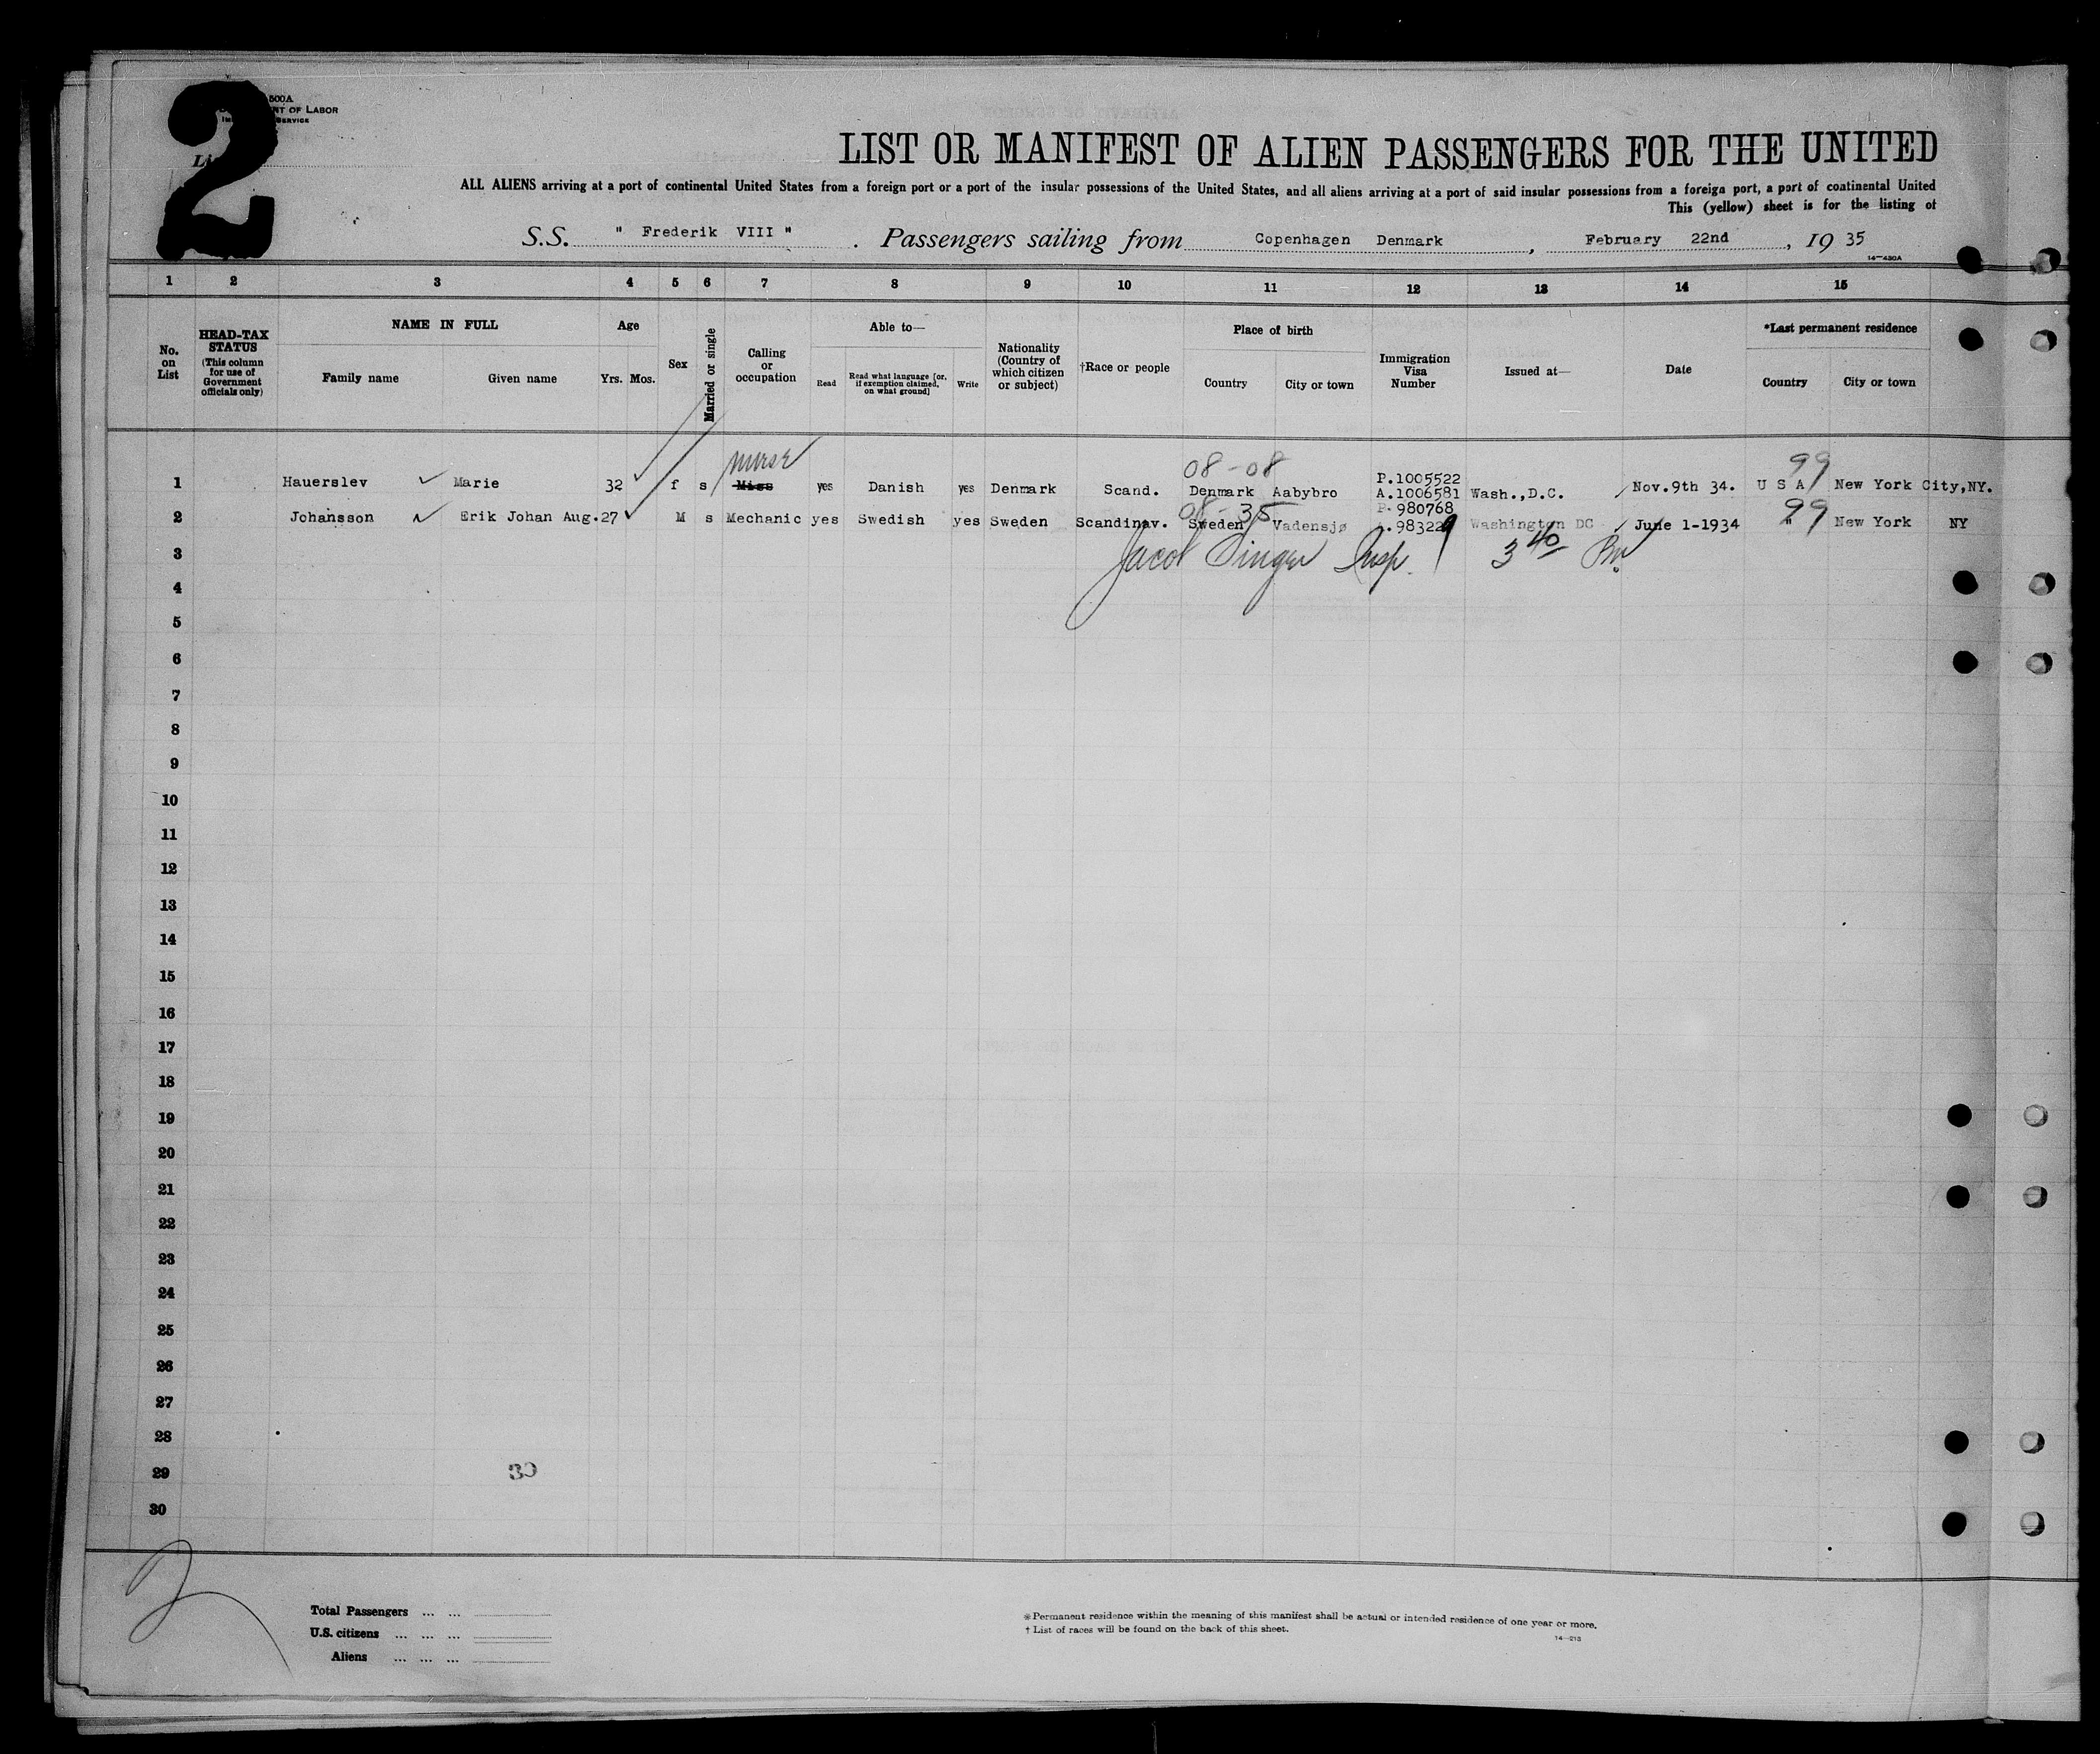 2
500A
NT OF LABOR
SERVICE
LIST OR MANIFEST OF ALIEN PASSENGERS FOR THE UNITED
ALL ALIENS arriving at a port of continental United States from a foreign port or a port of the insular possessions of the United States, and all aliens arriving at a port of said insular possessions from a foreign port, a port of continental United
This (yellow) sheet is for the listing of
S.S. " Frederik VIII " . Passengers sailing from Copenhagen Denmark , February 22nd , 19 35
14—430A
1 2 3 4 5 6 7 8 9 10 11 12 13 14 15
No. on List
HEAD-TAX STATUS (This column for use of Government officials only)
NAME IN FULL
Family name Given name
Age
Yrs. Mos.
Sex
Married or single
Calling or occupation
Able to—
Read Read what language [or, if exemption claimed, on what ground] Write
Nationality (Country of which citizen or subject)
†Race or people
Place of birth
Country City or town
Immigration Visa Number
Issued at—
Date
*Last permanent residence
Country City or town
nurse 08-08 99
1 Hauerslev Marie 32 f s Miss yes Danish yes Denmark Scand. Denmark Aabybro P.1005522 A.1006581 Wash.,D.C. Nov.9th 34. U S A New York City,NY.
08-35 99
2 Johansson Erik Johan Aug. 27 M s Mechanic yes Swedish yes Sweden Scandinav. Sweden Vadensjø P.980768 .983229 Washington DC June 1-1934 " New York NY
3 Jacob Singer Insp. 3 40 Pm
4
5
6
7
8
9
10
11
12
13
14
15
16
17
18
19
20
21
22
23
24
25
26
27
28
29 30
30
2
Total Passengers ... ...
U.S. citizens ... ... ...
Aliens ... ... ...
*Permanent residence within the meaning of this manifest shall be actual or intended residence of one year or more.
† List of races will be found on the back of this sheet.
14—213